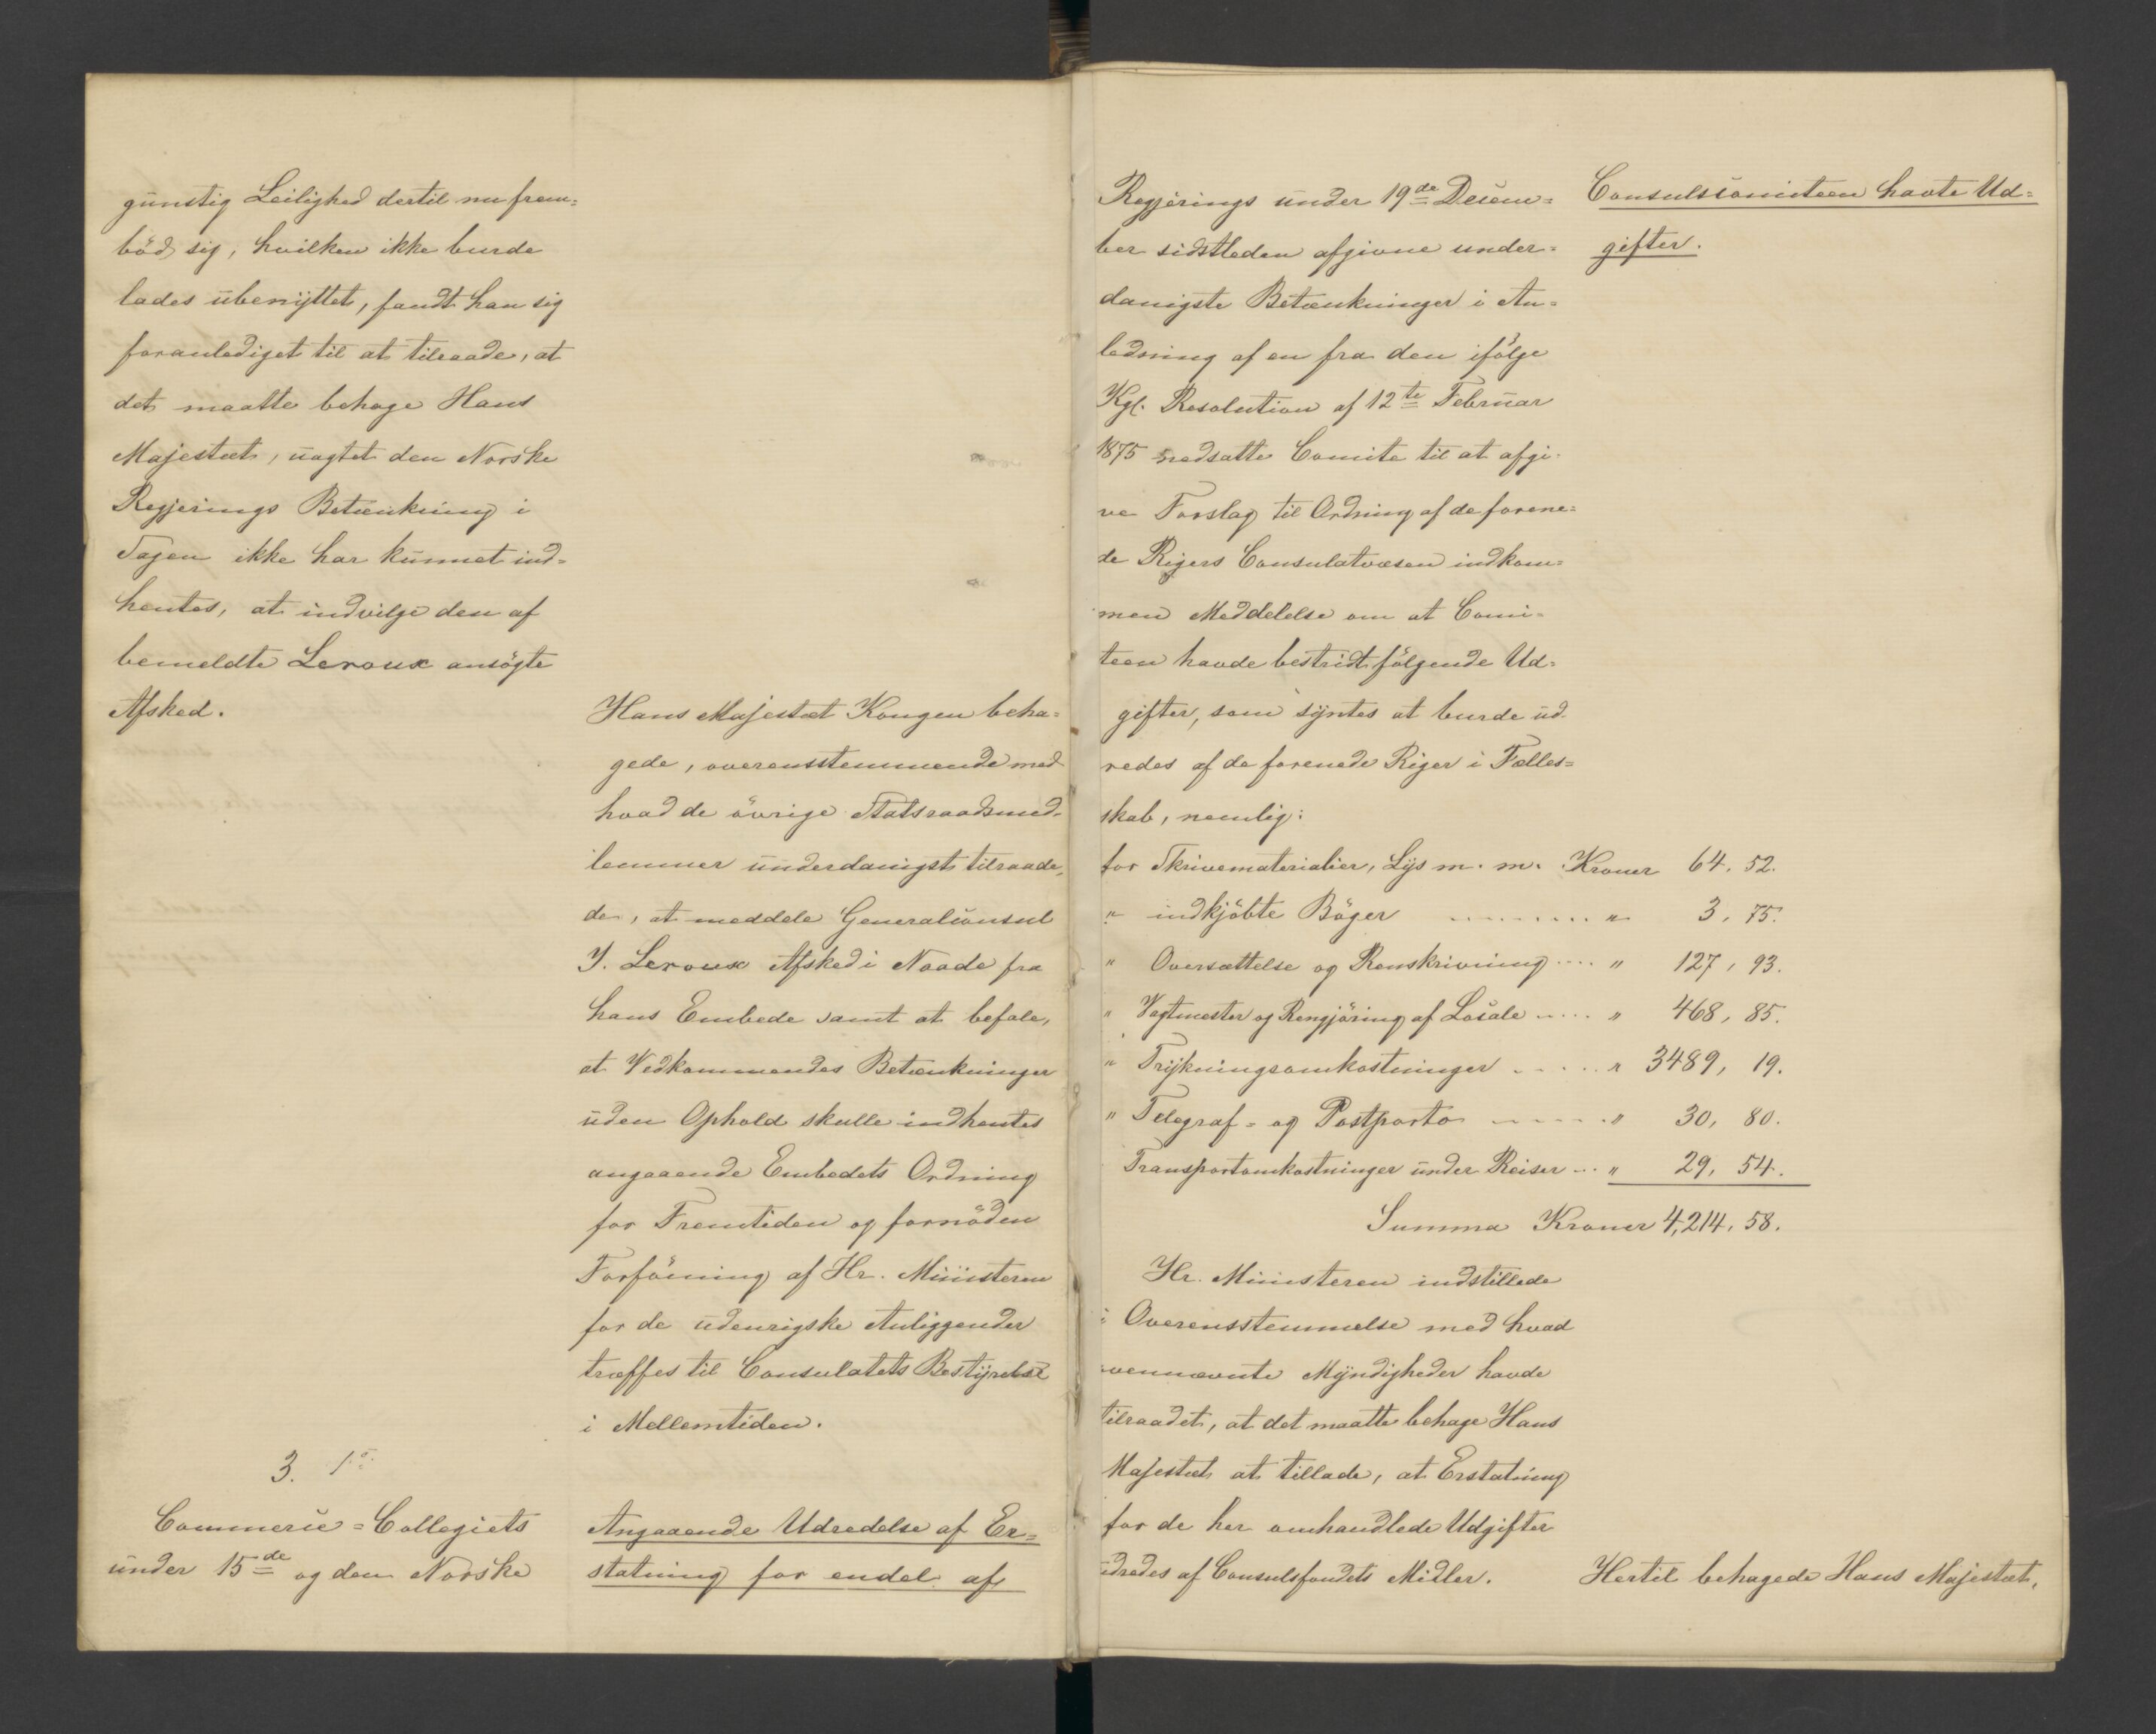 gunstig Leilighed dertil nu frem=
bød sig, hvilken ikke burde
lades ubenyttet, fandt han sig
foranlediget til at tilraade, at
det maatte behage Hans
Majestæt, uagtet den Norske
Regjerings Betænkning i
Sagen ikke har kunnet ind=
hentes, at indvilge den af
bemeldte Leroux ansögte
Afsked.
Hans Majestæt Kongen beha=
gede, overensstemmende med
hvad de övrige Statsraadsmed=
lemmer underdanigst tilraade,
de, at meddele Generalconsul
J. Leroux Afsked i Naade fra
hans Embede samt at befale,
at Vedkommendes Betænkninger
uden Ophold skulle indhentes
angaaende Embedets Ordning
for Fremtiden og fornöden
Forföining af Hr. Ministeren
for de udenrigske Anliggender
træffes til Consulatets Bestyrelse
i Mellemtiden.
3. 1o
Commerce=Collegiets
under 15de og den Norske
Angaaende Udredelse af Er=
statning for endel af
Regjerings under 19de Decem=
ber sidstleden afgivne under=
danigste Betænkninger i An=
ledning af en fra den ifölge
Kgl. Resolution af 12te Februar
1875 nedsatte Comite til at afgi=
ve Forslag til Ordning af de forene=
de Rigers Consulatvæsen indkom=
men Meddelelse om at Comi=
teen havde bestridt fölgende Ud=
gifter, som syntes at burde ud=
redes af de forenede Riger i Fælles=
skab, nemlig:
for Skrivematerialier, Lys m. m. Kroner 64, 52.
" indkjöbte Böger ........ " 3, 75.
" Oversættelse og Renskrivning .... " 127, 93.
" Vagtmester og Rengjöring af Locale .... " 468, 85.
" Trykningsomkostninger ..... " 3489, 19.
" Telegraf= og Postporto ...... " 30, 80.
Transportomkostninger under Reiser ... " 29, 54.
Summa Kroner 4,214, 58.
Hr. Ministeren indstillede
i Overensstemmelse med hvad
ovennævnte Myndigheder havde
tilraadet, at det maatte behage Hans
Majestæt at tillade, at Erstatning
for de her omhandlede Udgifter
udredes af Consulsfondets Midler.
Consulscomiteen havte Ud=
gifter.
Hertil behagede Hans Majestæt,